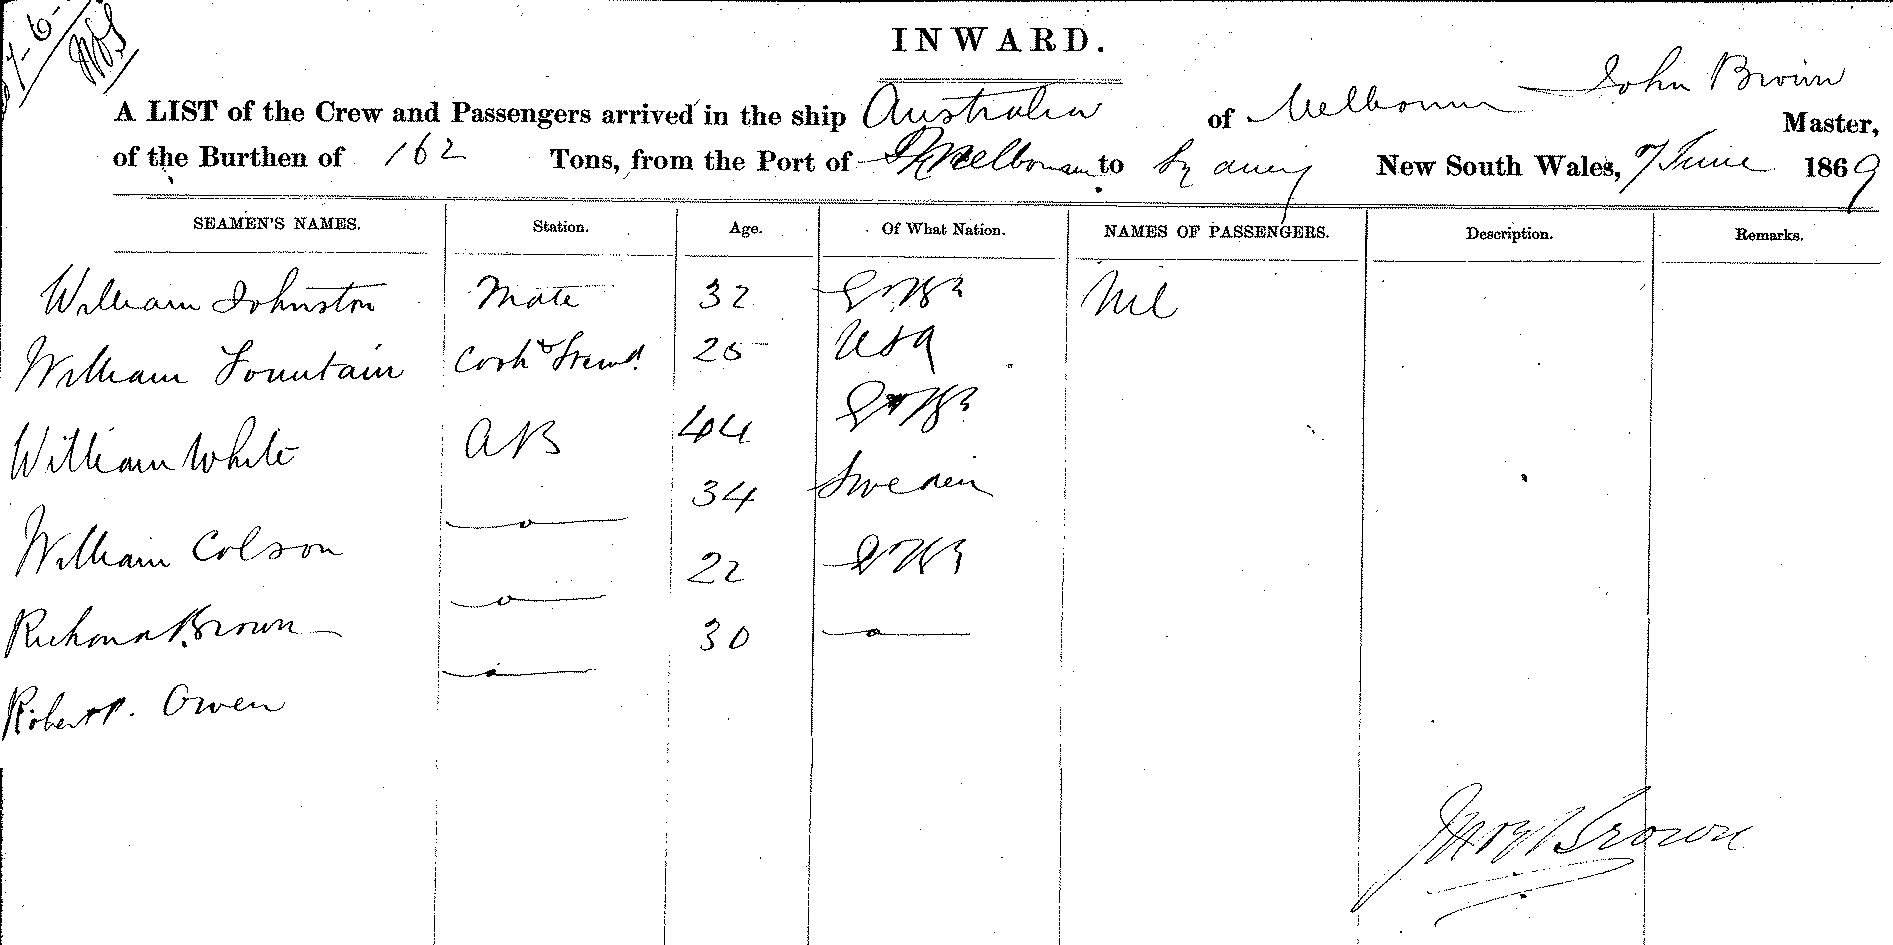 INWARD.
A LIST of the Crew and Passengers arrived in the ship Australia of Melbourne John Brown Master,
of the Burthen of 162 Tons, from the Port of Melbourne to Sydney New South Wales, 7 June 1869
SEAMEN'S NAMES. Station. Age. Of What Nation. NAMES OF PASSENGERS. Description. Remarks.
William Johnston Mate 32 Nil
William Fountain Cook & Stewd. 25 USA
William White AB 44
William Colson 34 Sweden
Richard Brown 22
Robert Owen 30
Brown